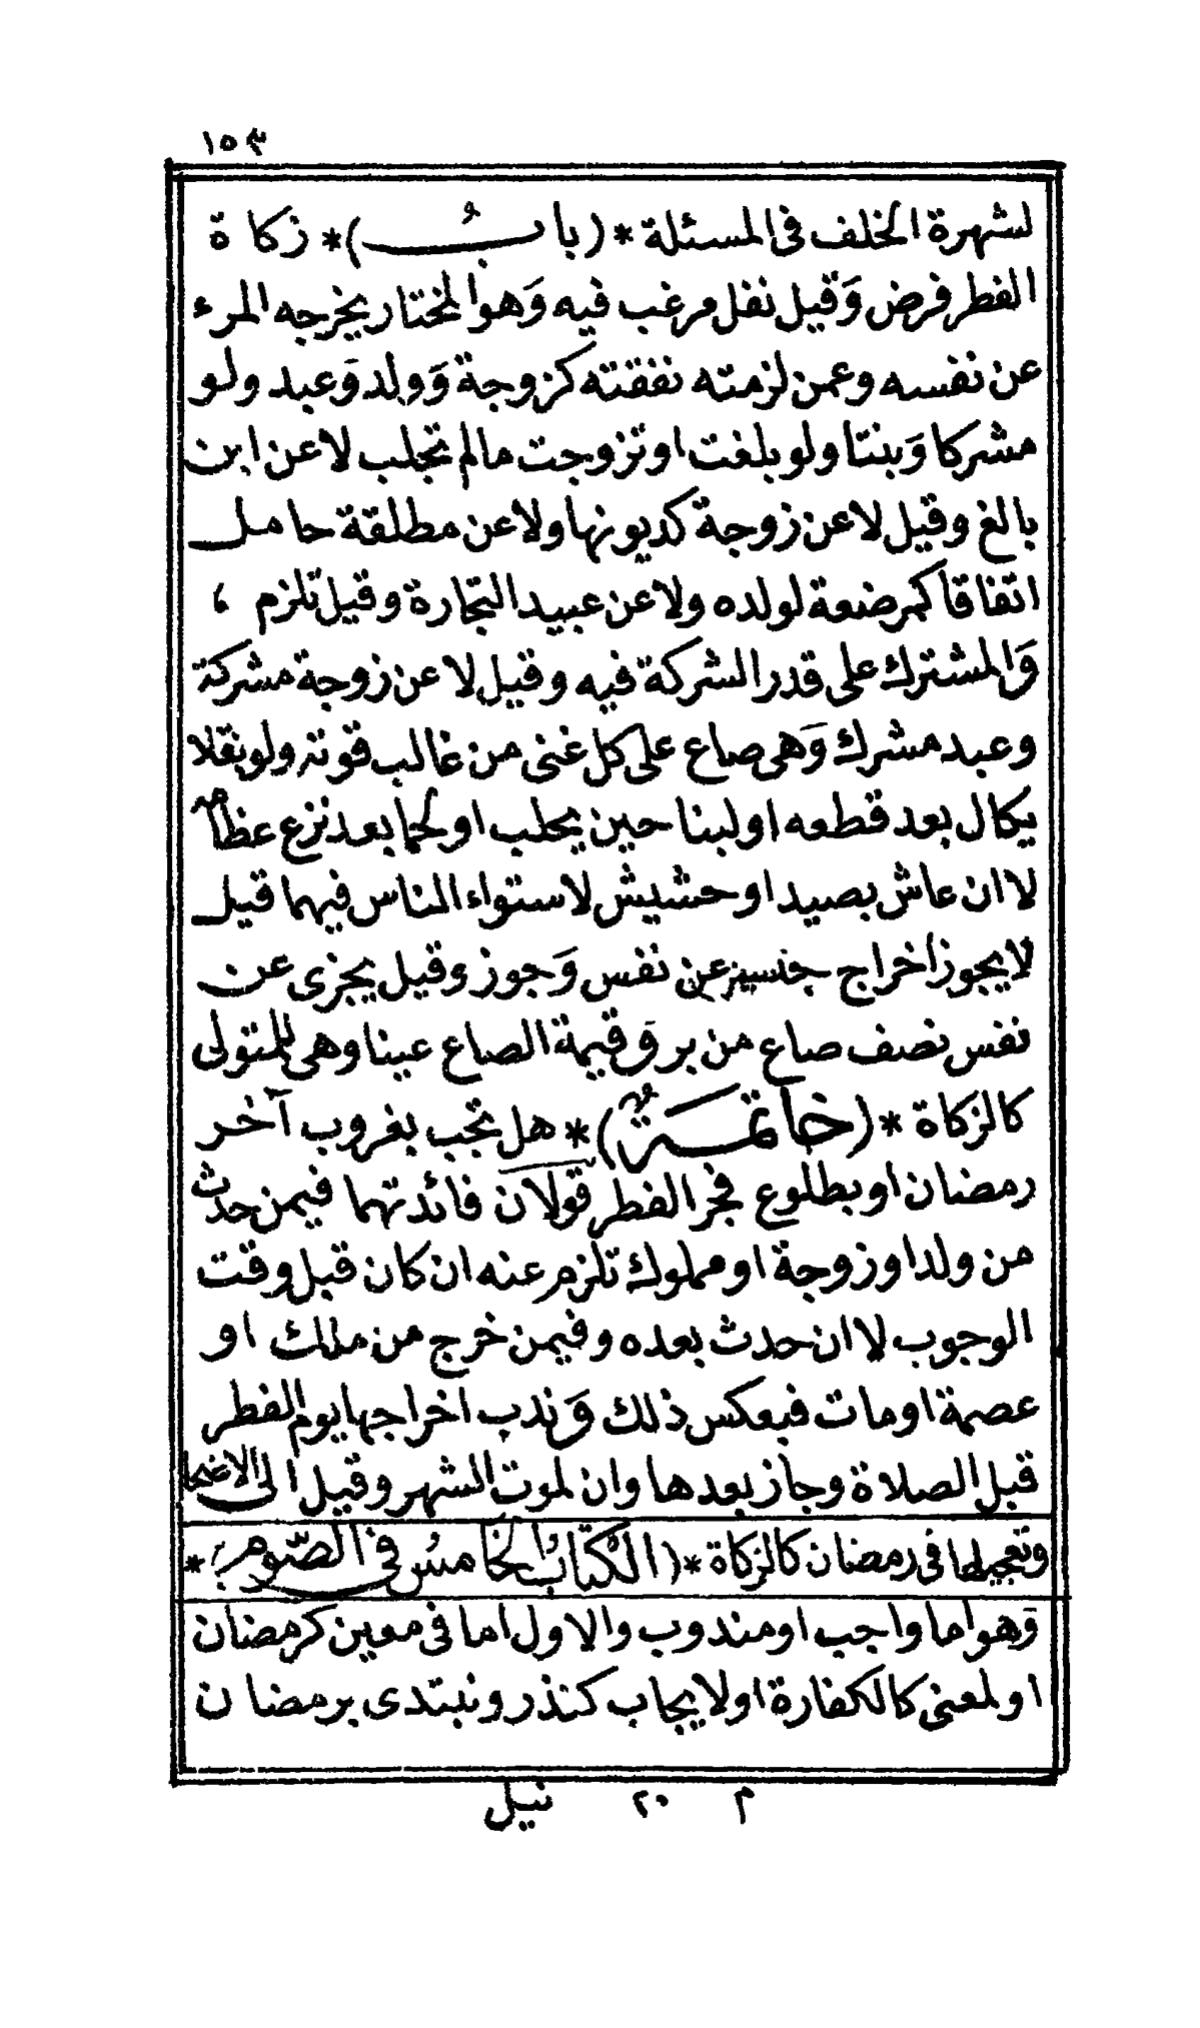 ١٥٣
لشهرة الخلف فى المسئلة * (بابُ) * زكاة
الفطر فرض وَقيل نفل مرغب فيه وَهو المختار يخرجه المرء
عن نفسه وعمن لزمته نفقته كزوجة وَولد وَعبد ولو
مشركا وَبنتا ولو بلغت او تزوجت مالم تجلب لا عن ابن
بالغ وقيل لا عن زوجة كديونها ولا عن مطلقة حامل
اتفاقا كمرضعة لولده ولا عن عبيد التجارة وقيل تلزم ،
وَالمشترك على قدر الشركة فيه وقيل لا عن زوجة مشركة
وعبد مشرك وَهى صاع على كل غنى من غالب قوته ولو بقلا
يكال بعد قطعه او لبنا حين يحلب او لحما بعد نزع عظامه
لا ان عاش بصيد او حشيش لاستواء الناس فيهما قيل
لا يجوز اخراج جنسين عن نفس وَجوز وقيل يجزى عن
نفس نصف صاع من بر وَقيمة الصاع عينا وهى للمتولى
كالزكاة * (خاتمةٌ) * هل تجب بغروب آخر
رمضان او بطلوع فجر الفطر قولان فائدتهما فيمن حدث
من ولد او زوجة او مملوك تلزم عنه ان كان قبل وقت
الوجوب لا ان حدث بعده وفيمن خرج من ملك او
عصمة او مات فبعكس ذلك وَندب اخراجها يوم الفطر
قبل الصلاة وجاز بعدها وان لموت الشهر وقيل الى الاضحى
وتعجيلها فى رمضان كالزكاة * (الكتابُ الخامسُ فى الصّوم) *
وَهو اما واجب او مندوب والاول اما فى معين كرمضان
او لمعنى كالكفارة او لايجاب كنذر ونبتدى برمضان
م ٢٠ نيل